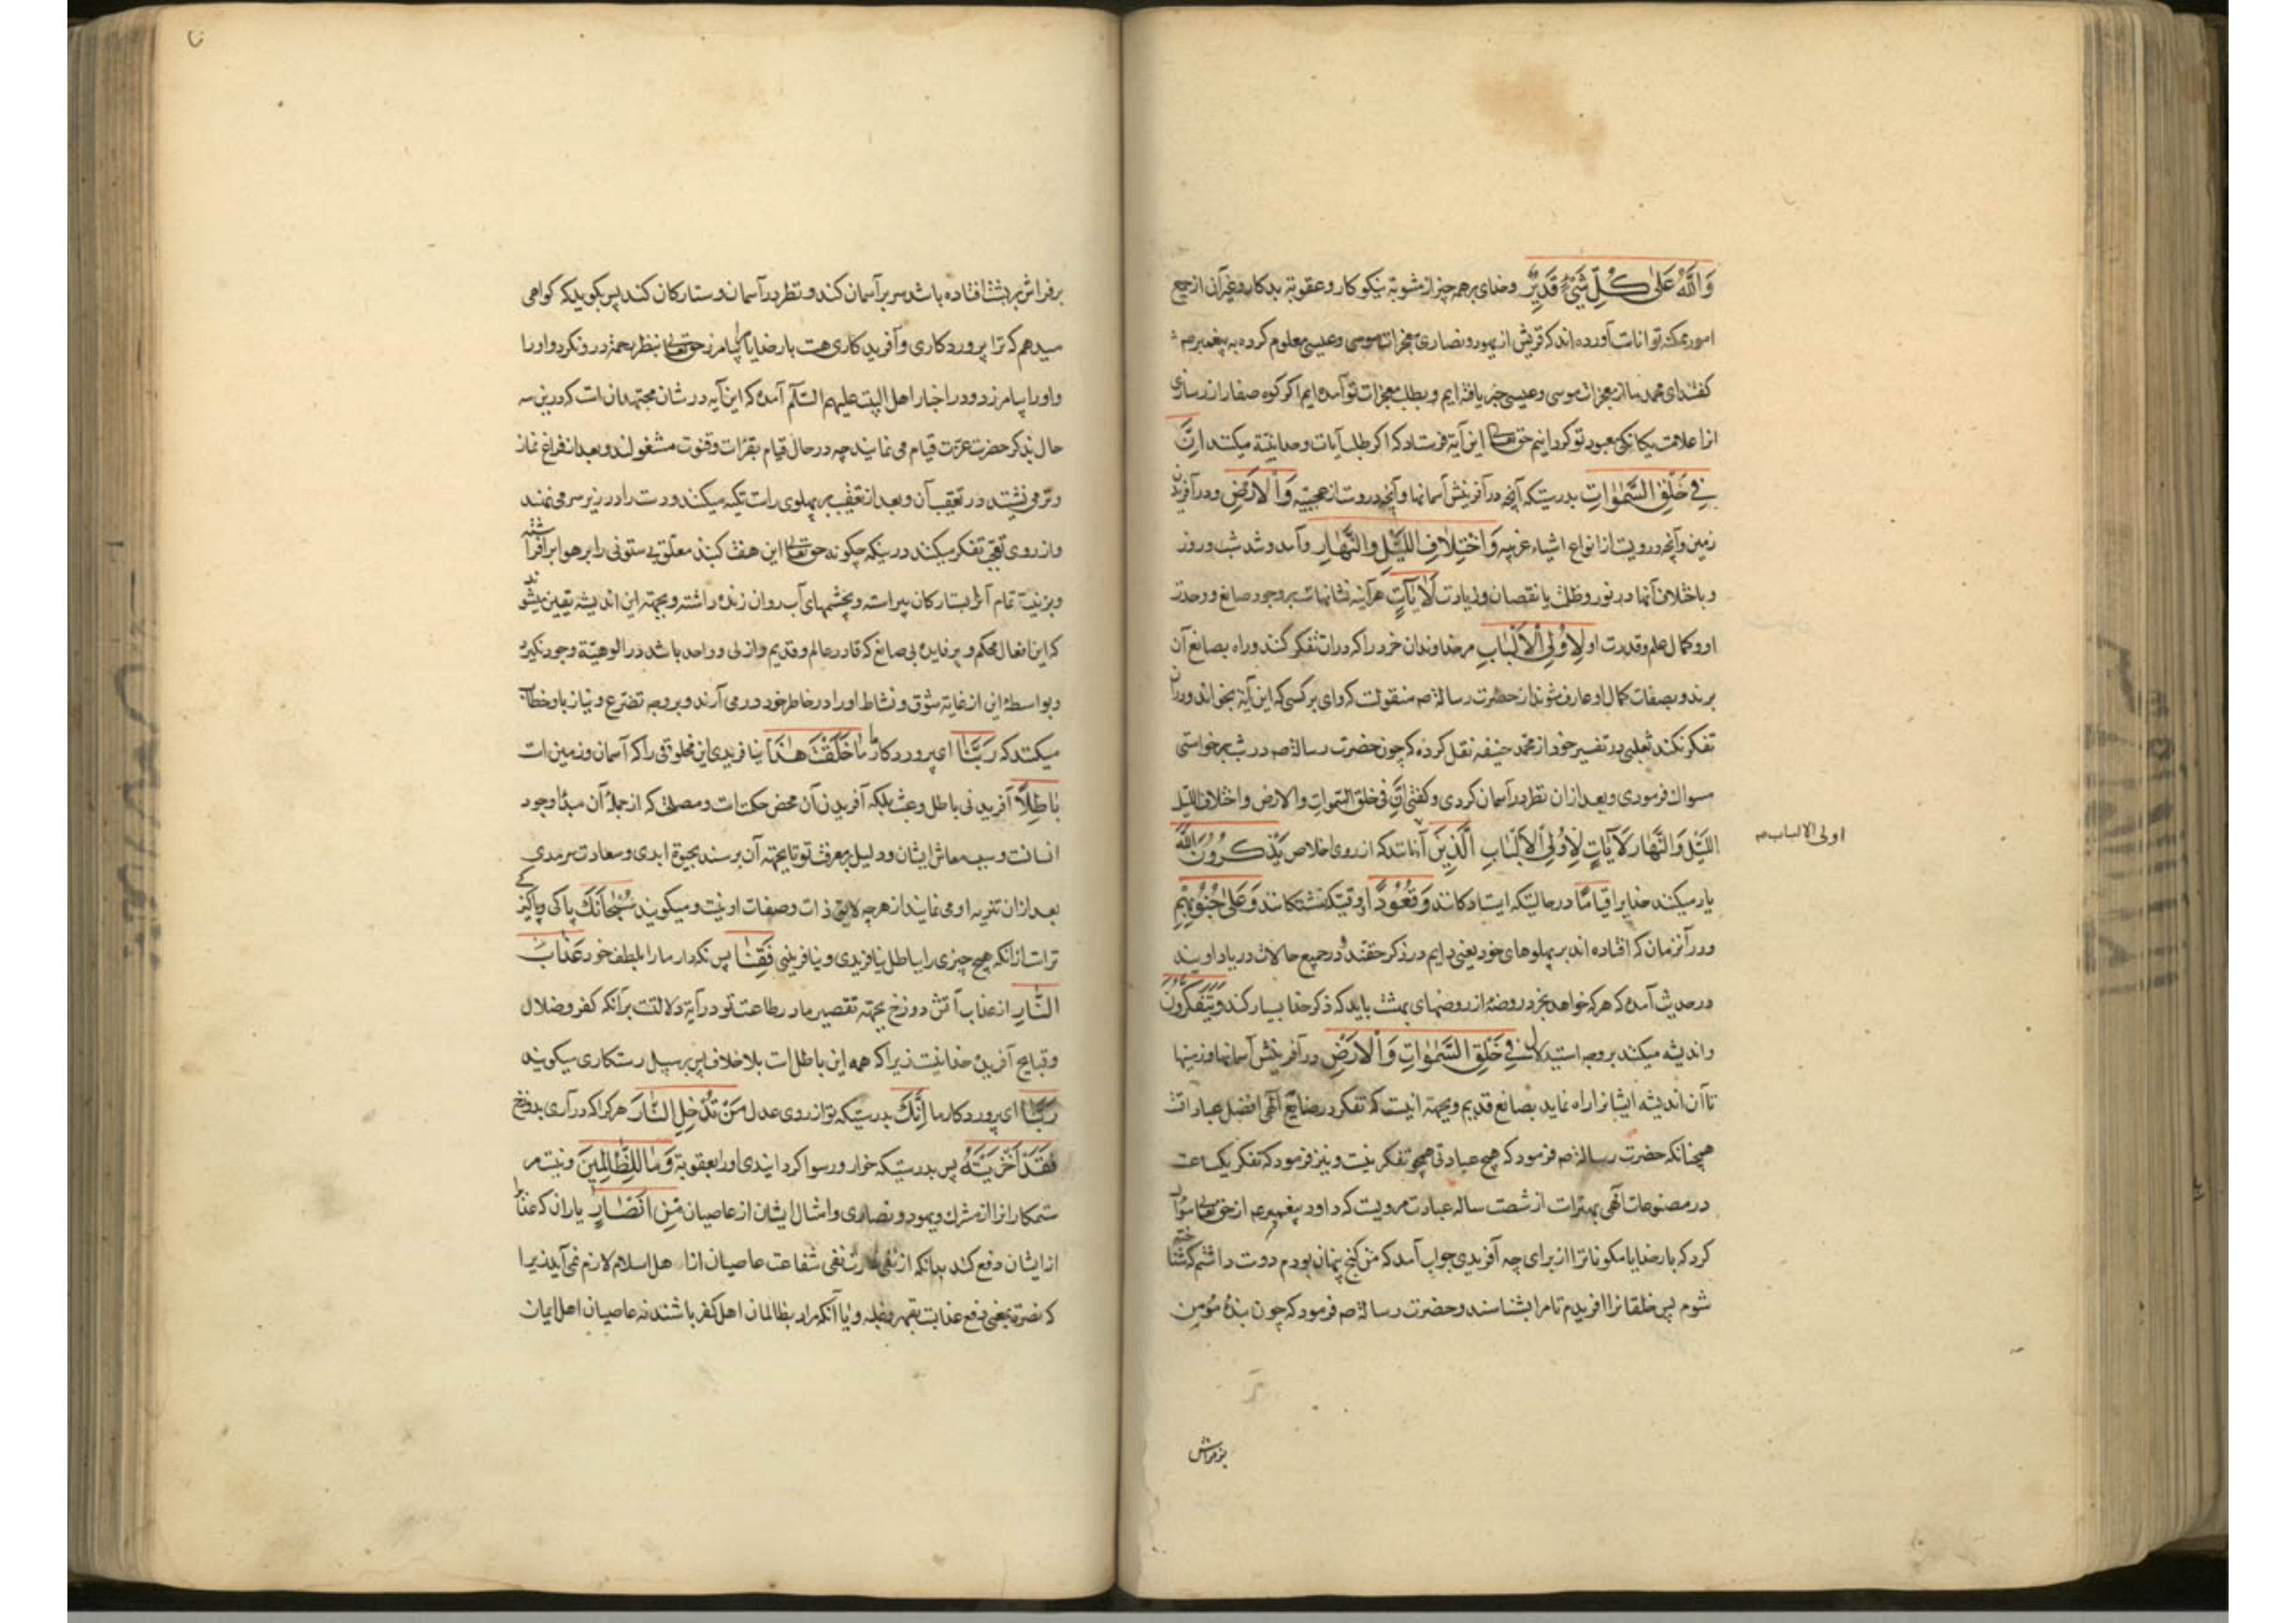 وَاللَّهُ عَلَىٰ كُلِّ شَيْءٍ قَدِيرٌ وخدای بر همه چیز از مثوبة نیکوکار و عقوبة بدکار و غیر آن از جمیع
امور ممکنه تواناست آورده اند که قریش از یهود و نصاری معجزات موسی و عیسی معلوم کرده به پیغمبر صم
گفتند ای محمد ما از معجزات موسی و عیسی خبر یافته ایم و بطلب معجزات تو آمده ایم اگر کوه صفا را زر سازی
انرا علامت یکانکی معبود تو کردانیم حق تعالی این آیة فرستاد که اکر طلب آیات وحدانیّة میکنند اِنَّ
فِي خَلْقِ السَّمٰوَاتِ بدرستیکه آنچه در آفرینش آسمانها و آنچه دروست از عجیبه وَالْاَرْضِ و در آفریدن
زمین و آنچه درویست از انواع اشیاء غریبه وَاخْتِلَافِ اللَّيْلِ وَالنَّهَارِ و آمد و شد شب و روز
و باختلاف آنها در نور و ظلمت یا نقصان و زیادت لَآيَاتٍ هرآینه نشانهاست بر وجود صانع و وحدت
او و کمال علم و قدرت او لِاُولِي الْاَلْبَابِ مر خداوندان خرد را که در ان تفکر کنند و راه بصانع آن
برند و بصفات کمال او عارف شوند از حضرت رسالة صم منقولست که وای بر کسی که این آیة بخواند و در ان
تفکر نکند ثعلبی در تفسیر خود از محمد حنیفه نقل کرده که چون حضرت رسالة صم در شب برخواستی
مسواک فرمودی و بعد از ان نظر در آسمان کردی و کفتی اِنَّ فی خلق السّموات والارض واختلاف اللیل
اللَّيْلَ وَالنَّهَارِ لَآيَاتٍ لِاُولِي الْاَلْبَابِ اَلَّذِينَ آنانند که از روی اخلاص يَذْكُرُونَ اللَّهَ
اولی الالباب صم
یاد میکنند خدایرا قِيَامًا در حالتیکه ایستادکانند وَقُعُودًا و وقتیکه نشستکانند وَعَلَىٰ جُنُوبِهِمْ
و در آنزمان که افتاده اند بر پهلوهای خود یعنی دایم در ذکر حقند و در جمیع حالات در یاد اویند
در حدیث آمده که هر که خواهد بخرد روضهٔ از روضهای بهشت باید که ذکر خدا بسیار کند وَيَتَفَكَّرُونَ
و اندیشه میکنند بر وجه استدلال فِي خَلْقِ السَّمٰوَاتِ وَالْاَرْضِ در آفرینش آسمانها و زمینها
تا آن اندیشه ایشانرا راه نماید بصانع قدیم و بجهة اینست که تفکر در صنایع آلهی افضل عباداتست
همچنانکه حضرت رسالة صم فرمود که هیچ عبادتی همچو تفکر نیست و نیز فرمود که تفکر یکساعت
در مصنوعات آلهی بهتر است از شصت ساله عبادت مرویست که داود پیغمبر عم از حق تعالی سؤال
کرد که بار خدایا مکونات را از برای چه آفریدی جواب آمد که من کنج پنهان بودم دوست داشتم که شناخته
شوم پس خلقانرا افریدم تا مرا بشناسند و حضرت رسالة صم فرمود که چون بندهٔ مؤمن
بر فراش
بر فراش بر پشت افتاده باشد سر بر آسمان کند و نظر در آسمان و ستارکان کند پس بکوید که کواهی
میدهم که ترا پروردکاری و آفریدکاری هست بار خدایا مرا بیامرز حق تعالی بنظر رحمة در و نکرد و اورا
و اورا بیامرزد و در اخبار اهل البیت علیهم السّلام آمده که این آیه در شان مجتهدانست که درین سه
حال بذکر حضرت عزت قیام می نمایند چه در حال قیام بقرات و قنوت مشغولند و بعد از فراغ نماز
وتر می نشینند در تعقیب آن و بعد از تعقیب بر پهلوی راست تکیه میکنند و دست را در زیر سر می نهند
و از روی تحقیق تفکر میکنند درینکه چکونه حق تعالی این هفت کنبد معلّق بی ستونی را بر هوا برافراشته
و بزینت تمام آنرا بستارکان پیراسته و بچشمهای آب روان زنده داشته و بجهة این اندیشه یقین میشوند
که این افعال محکم و پر فایده بی صانع که قادر و عالم و قدیم و ازلی و واحد باشد در الوهیّة وجود نکیرد
و بواسطهٔ این از غایة شوق و نشاط او را در خاطر خود در می آرند و بر وجه تضرع و نیاز باو خطاب
میکنند که رَبَّنَا ای پروردکار ما مَا خَلَقْتَ هٰذَا نیافریدی این مخلوقی را که آسمان و زمین است
بَاطِلًا آفریدنی باطل و عبث بلکه آفریدن آن محض حکمتست و مصلحتی که از جملهٔ آن مبدأ وجود
انسانست و سبب معاش ایشان و دلیل بمعرفت تو تا بجهة آن برسند بحیوة ابدی و سعادت سرمدی
بعد از ان تنزیه او می نمایند از هر چه لایق ذات و صفات او نیست و میکویند سُبْحَانَكَ پاکی و پاکیزکی
تراست از آنکه هیچ چیزی را بباطل نیافریدی و نیافرینی فَقِنَا پس نکه دار ما را بلطف خود عَذَابَ
النَّارِ از عذاب آتش دوزخ بجهة تقصیر ما در طاعت تو در آیة دلالتست بر آنکه کفر و ضلال
و قبایح آفریدهٔ خدا نیست زیرا که همه این باطل است بلاخلاف پس بر سبیل رستکاری میکویند
رَبَّنَا ای پروردکار ما اِنَّكَ بدرستیکه تو از روی عدل مَنْ تُدْخِلِ النَّارَ هر کرا که درآری بدوزخ
فَقَدْ اَخْزَيْتَهُ پس بدرستیکه خوار و رسوا کردانیدی اورا بعقوبة وَمَا لِلظَّالِمِينَ و نیست مر
ستمکارانرا از مشرک و یهود و نصاری و امثال ایشان از عاصیان مِنْ اَنْصَارٍ یاران که عذاب
از ایشان دفع کند بدانکه از نفی نصرت نفی شفاعت عاصیان از اهل اسلام لازم نمی آید زیرا
که نصرة بمعنی دفع عذابست بقهر و غلبه و یا آنکه مراد بظالمان اهل کفر باشند نه عاصیان اهل ایمان